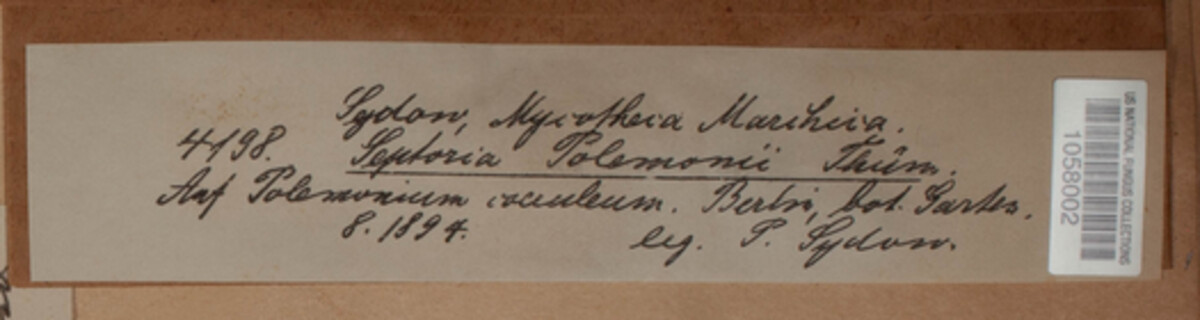 Sydow, Mycotheca Marchica.
4198. Septoria Polemonii Thüm.
Auf Polemonium coeruleum. Berlin, bot. Garten.
8. 1894. leg. P. Sydow.
US NATIONAL FUNGUS COLLECTIONS
1058002